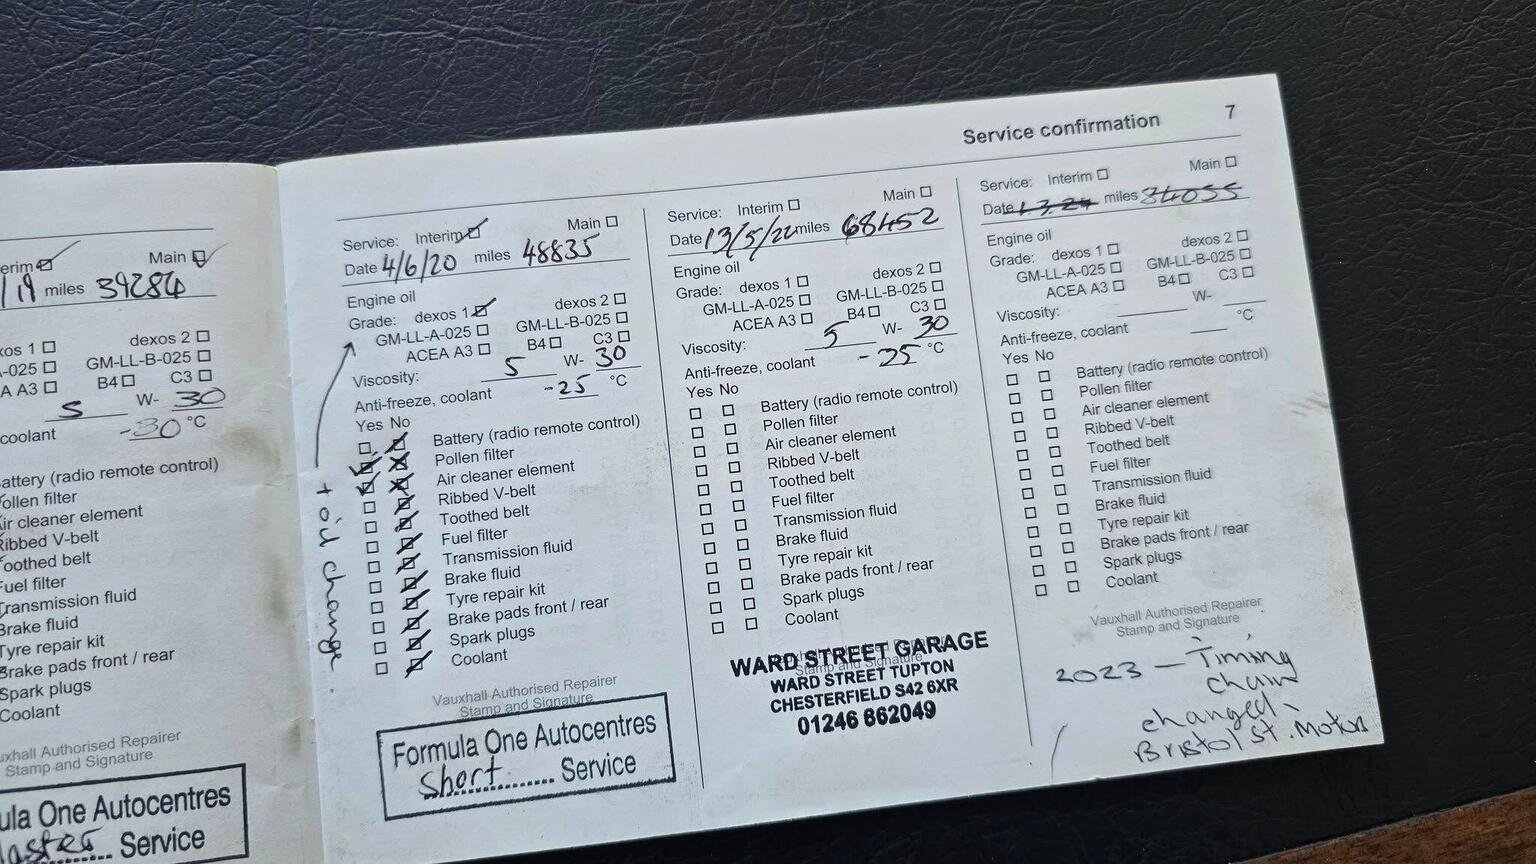 erim Main
/19 miles 39284
xos 1 dexos 2
-025 GM-LL-B-025
A A3 B4 C3
5 W- 30
coolant -30 °C
attery (radio remote control)
ollen filter
ir cleaner element
Ribbed V-belt
Toothed belt
Fuel filter
Transmission fluid
Brake fluid
Tyre repair kit
Brake pads front / rear
Spark plugs
Coolant
uxhall Authorised Repairer
Stamp and Signature
ula One Autocentres
Service
Service confirmation 7
Service: Interim Main
Date 4/6/20 miles 48835
Engine oil
Grade: dexos 1 dexos 2
GM-LL-A-025 GM-LL-B-025
ACEA A3 B4 C3
Viscosity: 5 W- 30
Anti-freeze, coolant -25 °C
Yes No
Battery (radio remote control)
Pollen filter
Air cleaner element
Ribbed V-belt
Toothed belt
Fuel filter
Transmission fluid
Brake fluid
Tyre repair kit
Brake pads front / rear
Spark plugs
Coolant
+ oil change.
Vauxhall Authorised Repairer
Stamp and Signature
Formula One Autocentres
Short Service
Service: Interim Main
Date 13/5/22 miles 68452
Engine oil
Grade: dexos 1 dexos 2
GM-LL-A-025 GM-LL-B-025
ACEA A3 B4 C3
Viscosity: 5 W- 30
Anti-freeze, coolant -25 °C
Yes No
Battery (radio remote control)
Pollen filter
Air cleaner element
Ribbed V-belt
Toothed belt
Fuel filter
Transmission fluid
Brake fluid
Tyre repair kit
Brake pads front / rear
Spark plugs
Coolant
Vauxhall Authorised Repairer
Stamp and Signature
WARD STREET GARAGE
WARD STREET TUPTON
CHESTERFIELD S42 6XR
01246 862049
Service: Interim Main
Date 1.3.24 miles 84055
Engine oil
Grade: dexos 1 dexos 2
GM-LL-A-025 GM-LL-B-025
ACEA A3 B4 C3
Viscosity: W-
Anti-freeze, coolant °C
Yes No
Battery (radio remote control)
Pollen filter
Air cleaner element
Ribbed V-belt
Toothed belt
Fuel filter
Transmission fluid
Brake fluid
Tyre repair kit
Brake pads front / rear
Spark plugs
Coolant
Vauxhall Authorised Repairer
Stamp and Signature
2023 - Timing
chain
changed -
Bristol St. Motors